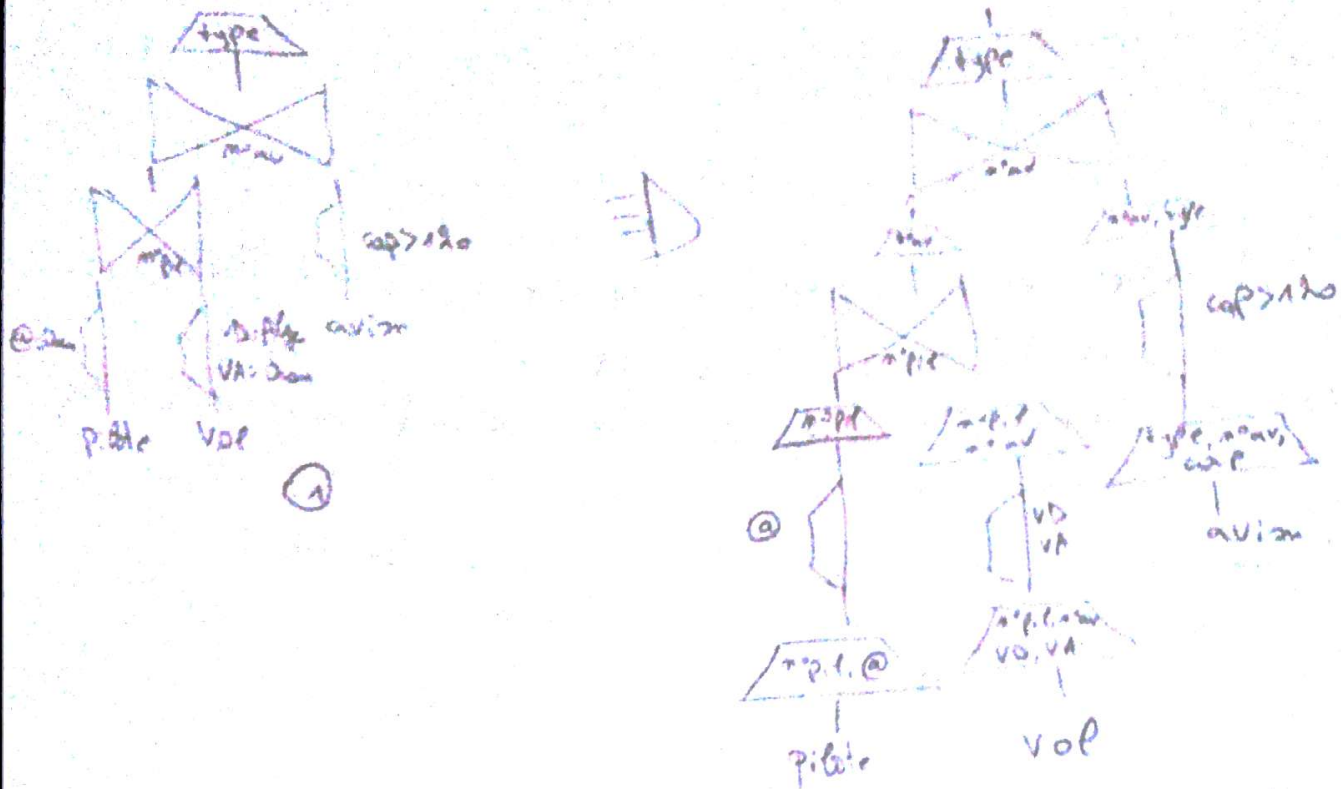 type
n°av
n°pl
cap>120
@
avion
pilote
vol
1
type
n°av
n°av
n°av, type
cap>120
n°pil
n°pl
n°pil
n°av
type, n°av,
cap
@
VD
VA
avion
n°pil, @
n°pil, n°av,
VD, VA
pilote
vol